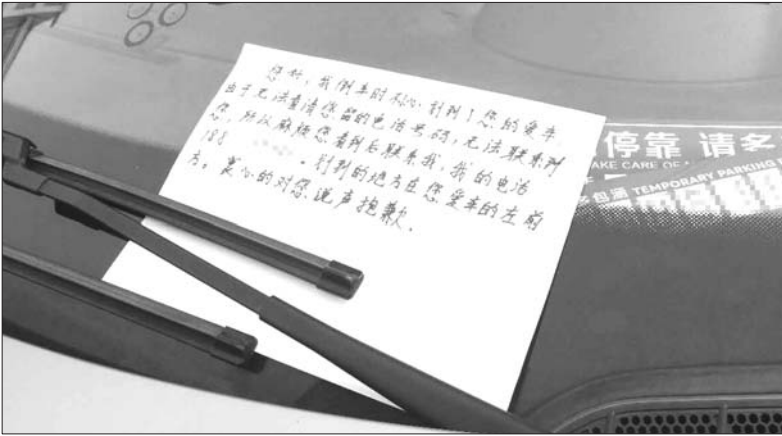 您好，我倒车时不小心刮到了您的爱车。
由于无法看清您留的电话号码，无法联系到
您，所以麻烦您看到后联系我，我的电话
183
。刮到的地方在您爱车的左前
方。衷心的对您说声抱歉。
停靠 请多
TAKE CARE OF
TEMPORARY PARKING
包涵